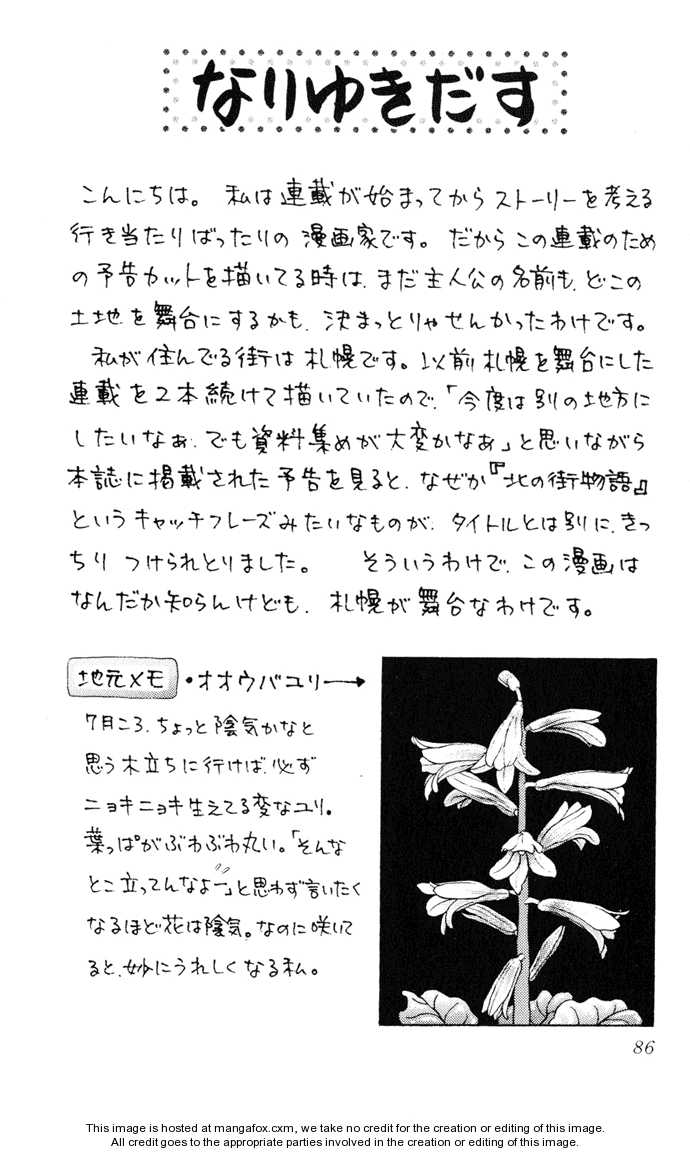 なりゆきだす
こんにちは。 私は連載が始まってからストーリーを考える
行き当たりばったりの漫画家です。だからこの連載のため
の予告カットを描いてる時は、まだ主人公の名前も、どこの
土地を舞台にするかも、決まっとりゃせんかったわけです。
私が住んでる街は札幌です。以前札幌を舞台にした
連載を2本続けて描いていたので、「今度は別の地方に
したいなぁ、でも資料集めが大変かなぁ」と思いながら
本誌に掲載された予告を見ると、なぜか『北の街物語』
というキャッチフレーズみたいなものが、タイトルとは別に、きっ
ちり つけられとりました。 そういうわけで、この漫画は
なんだか知らんけども、札幌が舞台なわけです。
地元メモ ・オオウバユリ→
7月ころ、ちょっと陰気かなと
思う木立ちに行けば、必ず
ニョキニョキ生えてる変なユリ。
葉っぱがぶわぶわ丸い。「そんな
とこ立ってんなよー」と思わず言いたく
なるほど花は陰気。なのに咲いて
ると、妙にうれしくなる私。
86
This image is hosted at mangafox.cxm, we take no credit for the creation or editing of this image.
All credit goes to the appropriate parties involved in the creation or editing of this image.